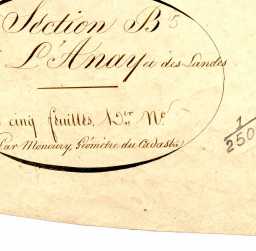 Section B 5
L'Anay et des Landes
cinq feuilles, 1ère Nº
Par Géomètre du Cadastre
1/250